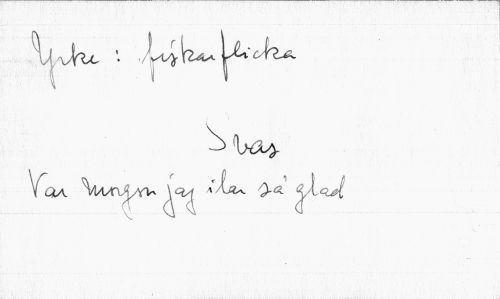 Yrke : fiskarflicka
Ivas
Var morgon jag ilar så glad